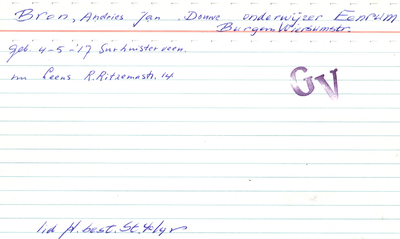 Bron, Andries Jan Douwe onderwijzer Eenrum
Burgem Wiersumstr.
geb. 4-5-'17 Surhuisterveen.
nu Leens R. Ritzemastr. 14
GV
lid H. best. St. 4-lyr